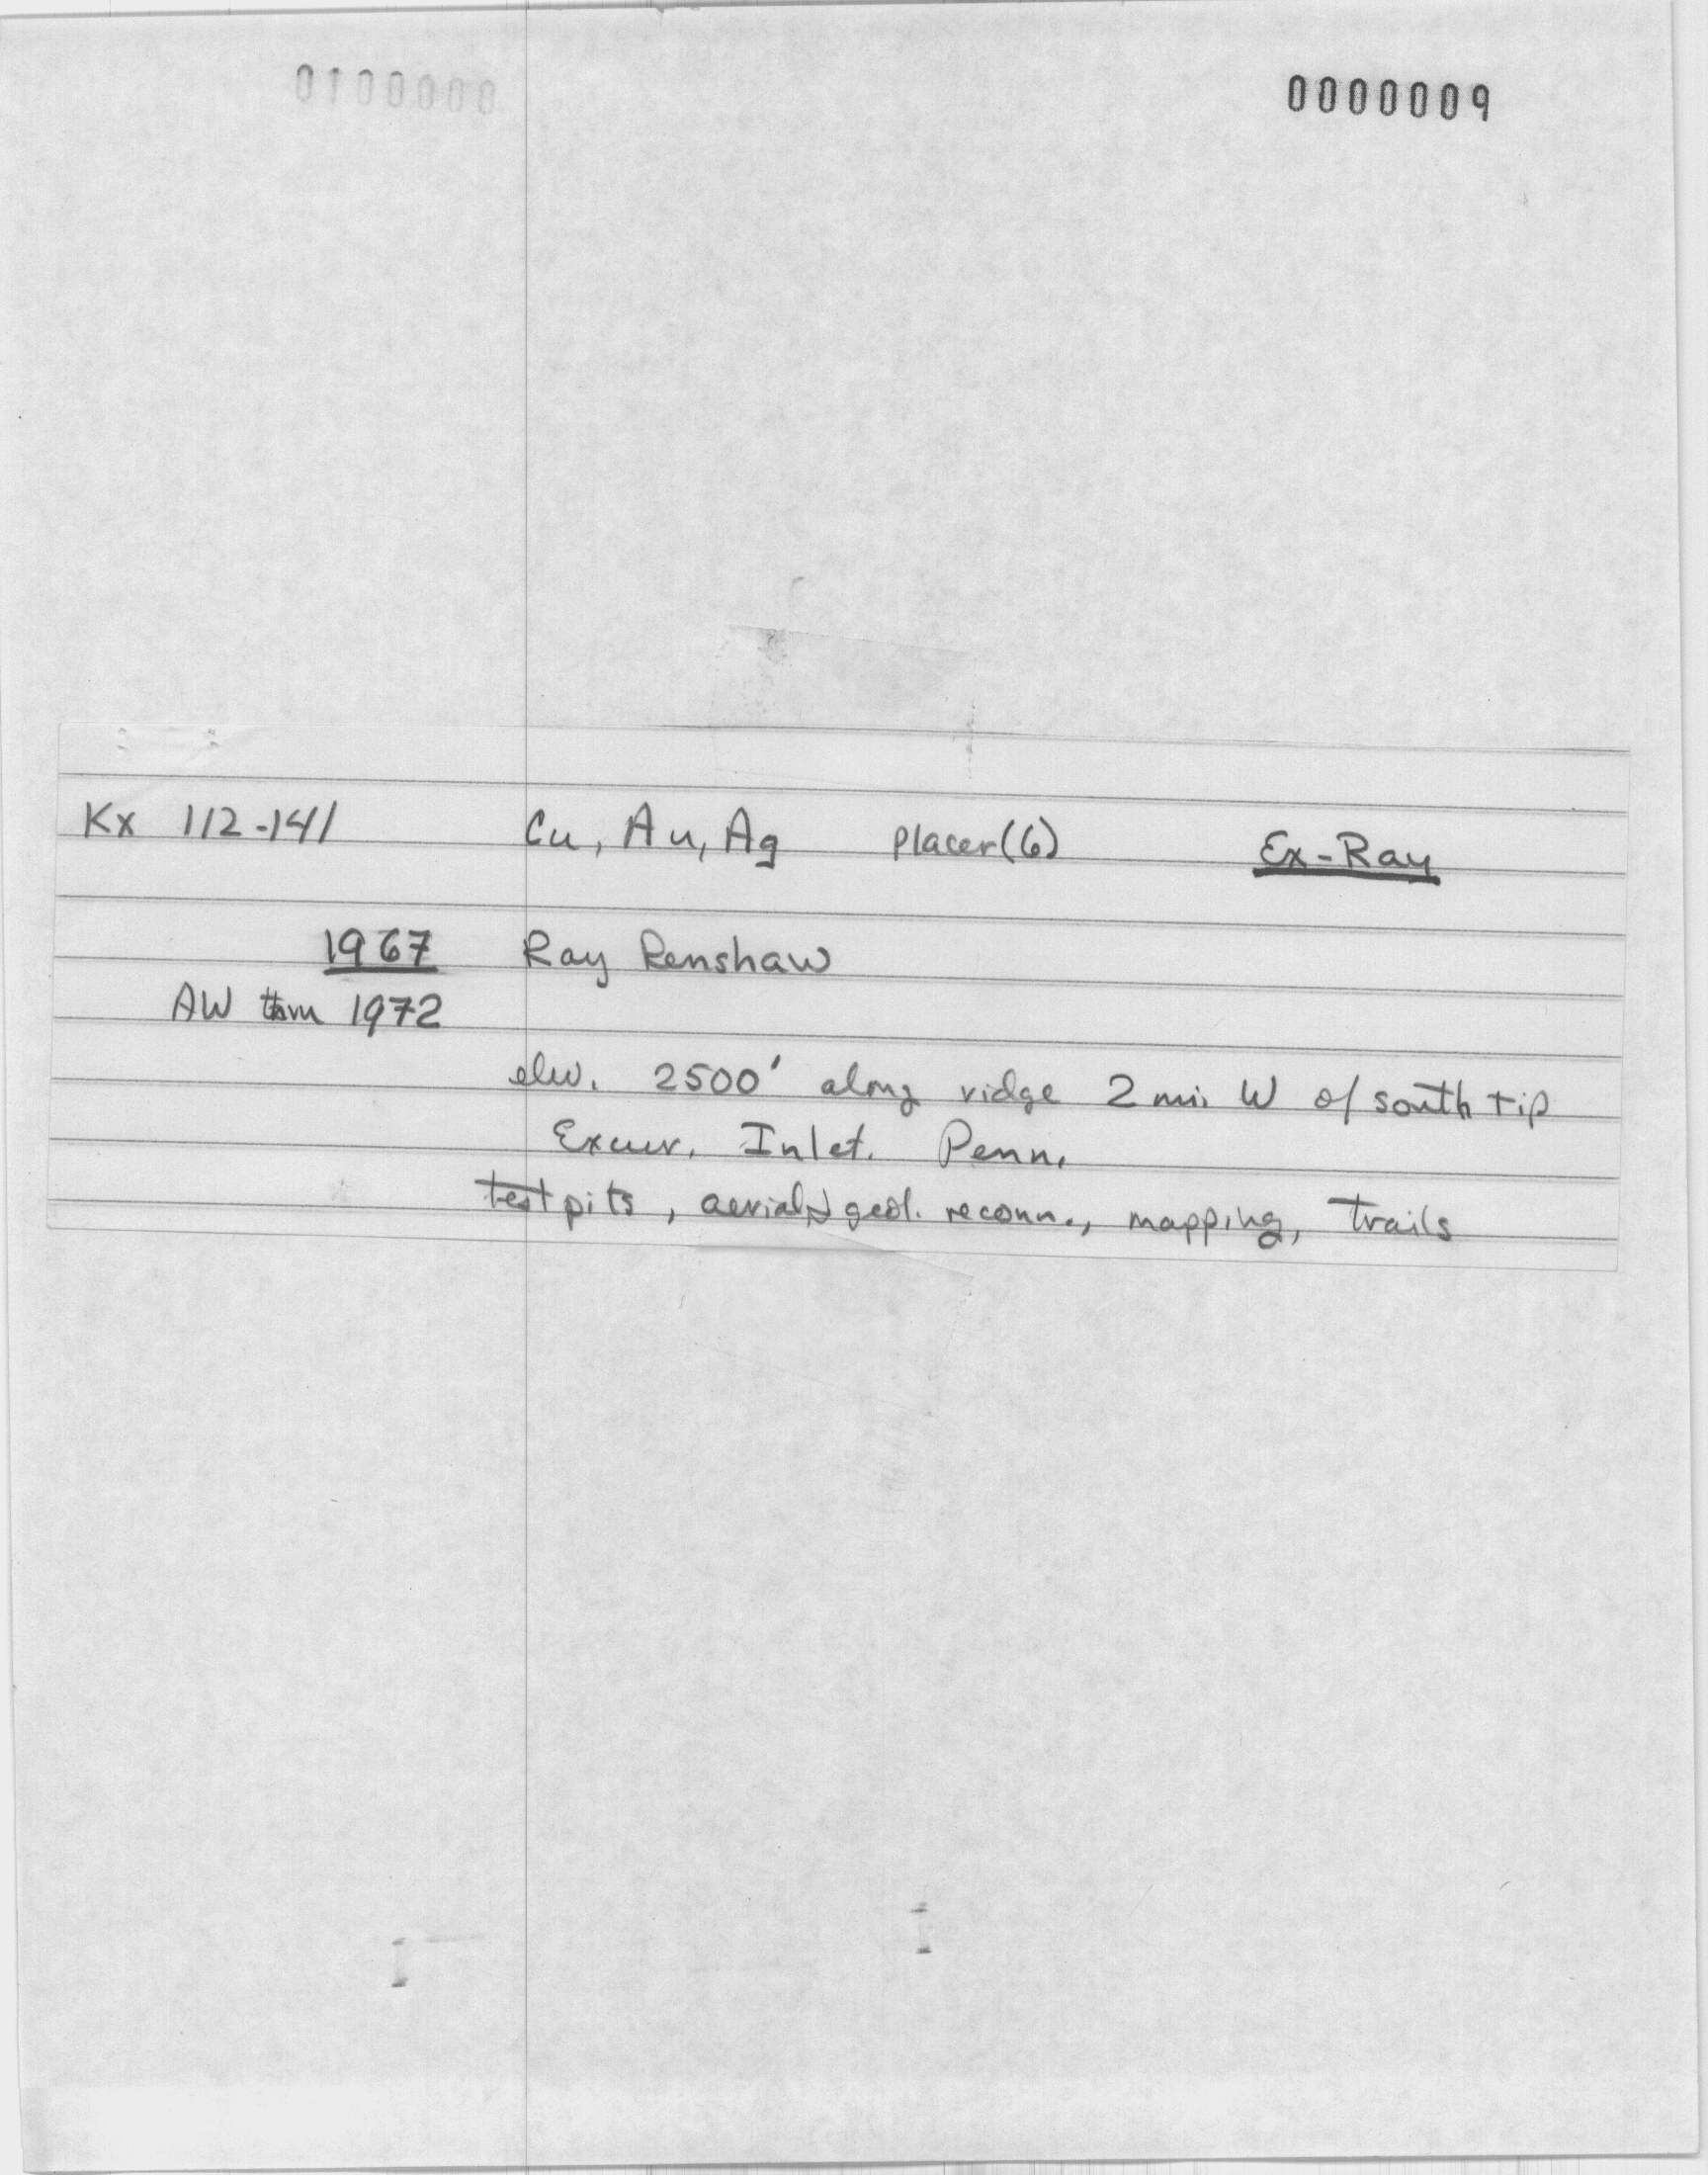 0100000 0000009
Kx 112-141 Cu, Au, Ag Placer(6) Ex-Ray
1967 Ray Renshaw
AW thru 1972
elev. 2500' along ridge 2 mi. W of south tip
Excur. Inlet. Penn.
test pits, aerial & geol. reconn., mapping, trails